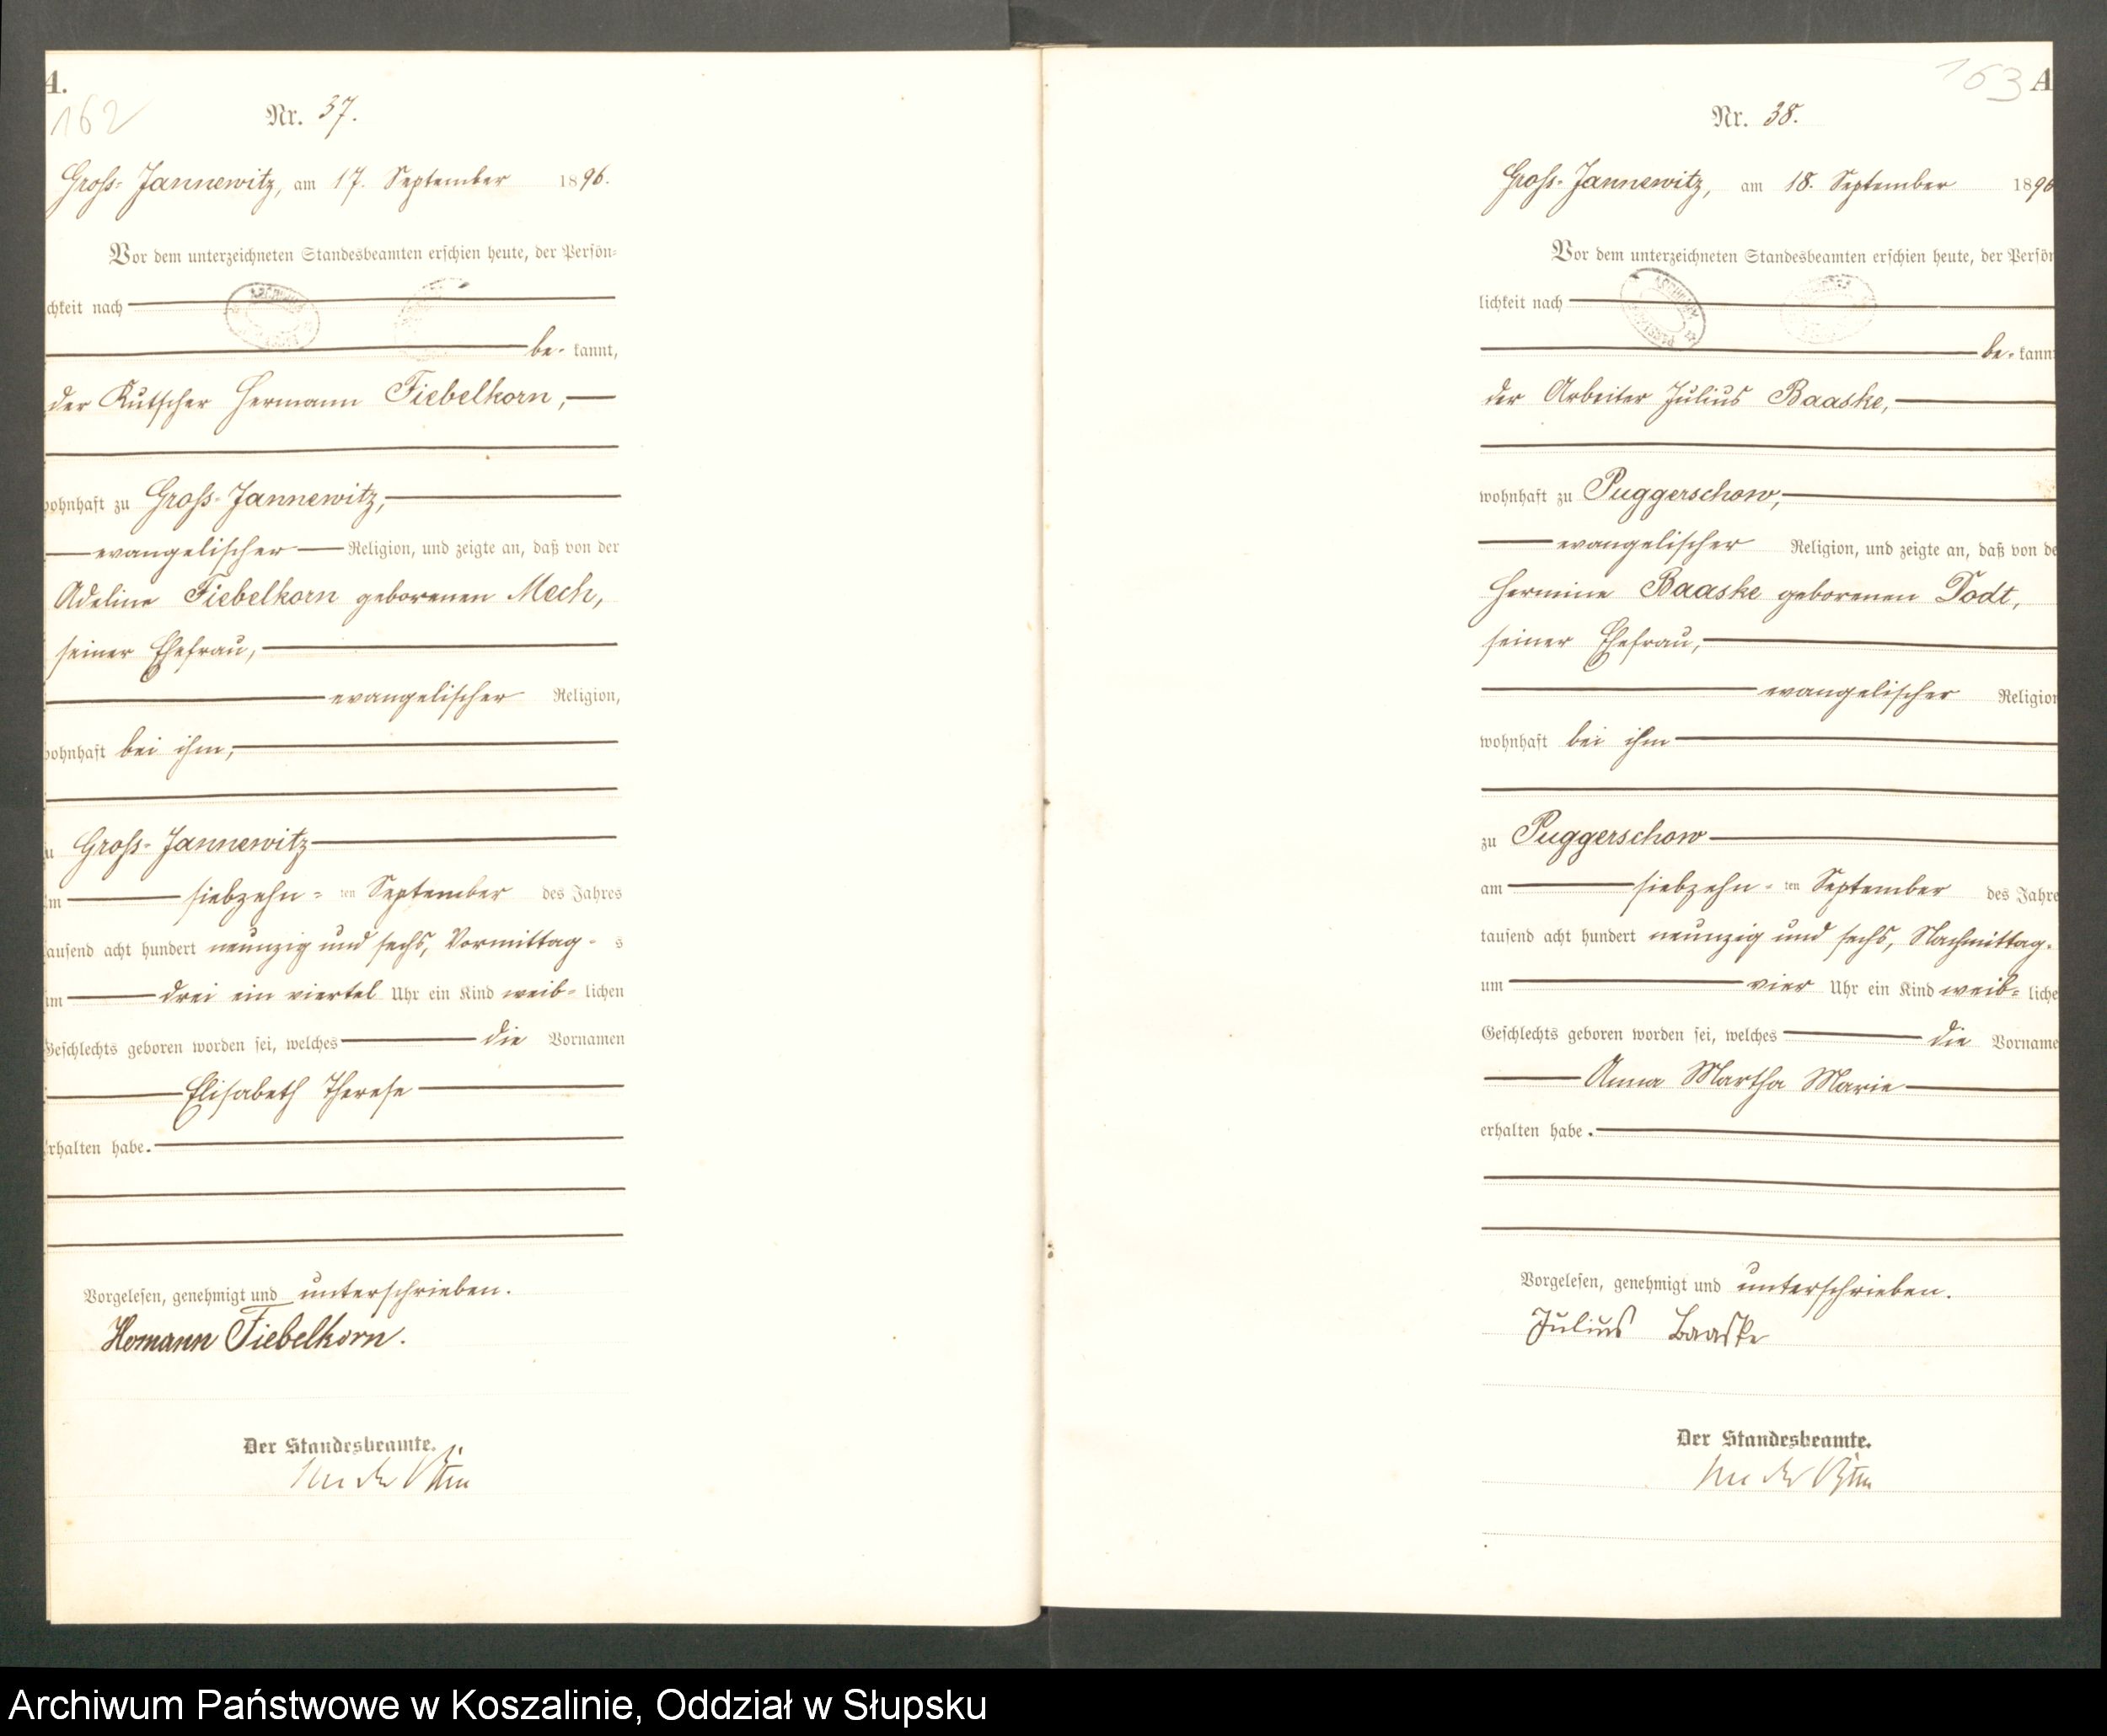 A.
162
Nr. 37.
Groß-Jannewitz, am 17. September 1896.
Vor dem unterzeichneten Standesbeamten erschien heute, der Persön-
chkeit nach
be- kannt,
der Kutscher Hermann Fiebelkorn,
ohnhaft zu Groß-Jannewitz,
evangelischer Religion, und zeigte an, daß von der
Adeline Fiebelkorn geborenen Mech,
seiner Ehefrau,
evangelischer Religion,
ohnhaft bei ihm,
u Groß-Jannewitz
m siebzehn-ten September des Jahres
tausend acht hundert neunzig und sechs, Vormittag-s
um drei ein viertel Uhr ein Kind weib-lichen
Geschlechts geboren worden sei, welches die Vornamen
Elisabeth Therese
erhalten habe.
Vorgelesen, genehmigt und unterschrieben.
Hermann Fiebelkorn.
Der Standesbeamte.
163 A
Nr. 38.
Groß-Jannewitz, am 18. September 1896
Vor dem unterzeichneten Standesbeamten erschien heute, der Persön
lichkeit nach
be- kann
der Arbeiter Julius Baaske,
wohnhaft zu Puggerschow,
evangelischer Religion, und zeigte an, daß von de
Hermine Baaske geborenen Dodt,
seiner Ehefrau,
evangelischer Religion
wohnhaft bei ihm
zu Puggerschow
am siebzehn-ten September des Jahre
tausend acht hundert neunzig und sechs, Nachmittag-
um vier Uhr ein Kind weib-liche
Geschlechts geboren worden sei, welches die Vorname
Anna Martha Marie
erhalten habe.
Vorgelesen, genehmigt und unterschrieben.
Julius Baaske
Der Standesbeamte.
Archiwum Państwowe w Koszalinie, Oddział w Słupsku